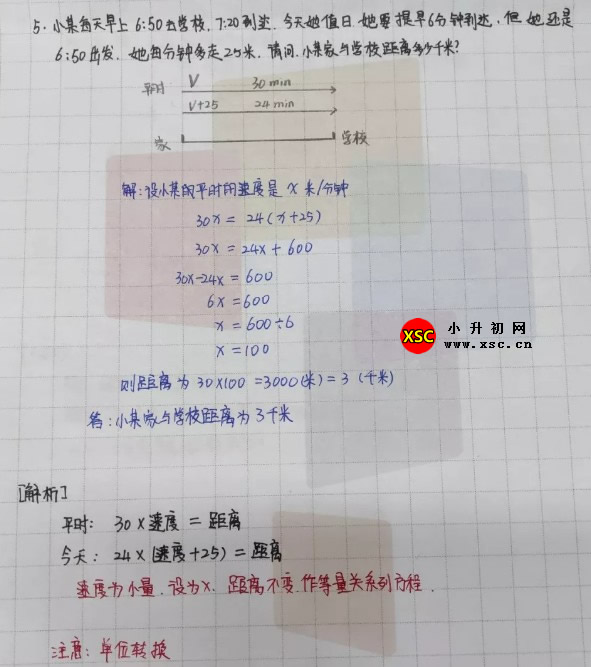 5. 小某每天早上 6:50去学校, 7:20到达. 今天她值日她要提早6分钟到达, 但她还是
6:50出发. 她每分钟多走25米. 请问, 小某家与学校距离多少千米?
平时 V 30 min
V+25 24 min
家 学校
解:设小某的平时的速度是 x 米/分钟
30x = 24(x+25)
30x = 24x + 600
30x-24x = 600
6x = 600
x = 600÷6
x = 100
则距离为 30×100 =3000(米) = 3 (千米)
答:小某家与学校距离为3千米
XSC 小升初网
www.xsc.cn
[解析]
平时: 30×速度 = 距离
今天: 24×(速度+25) = 距离
速度为小量, 设为x. 距离不变. 作等量关系列方程.
注意: 单位转换